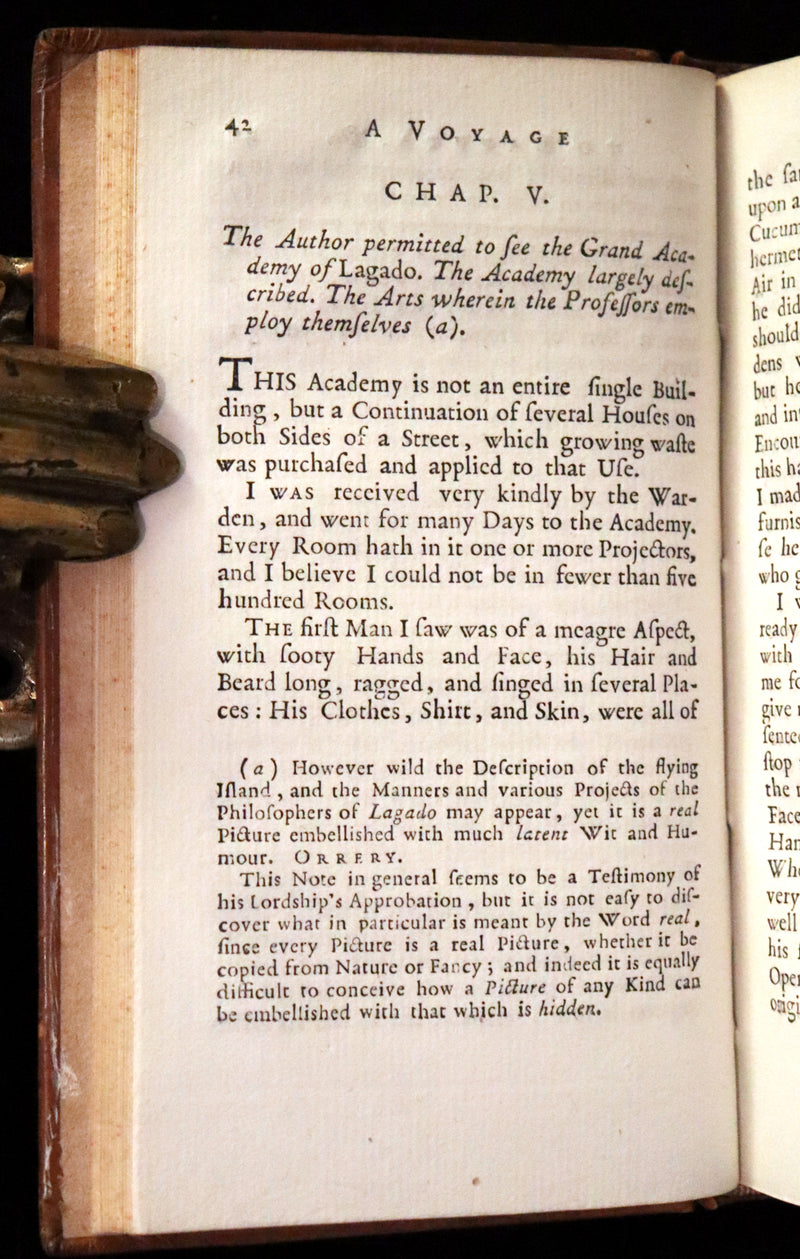 42 A VOYAGE
CHAP. V.
The Author permitted to ſee the Grand Aca-
demy of Lagado. The Academy largely deſ-
cribed. The Arts wherein the Profeſſors em-
ploy themſelves (a).
THIS Academy is not an entire ſingle Buil-
ding , but a Continuation of ſeveral Houſes on
both Sides of a Street, which growing waſte
was purchaſed and applied to that Uſe.
I WAS received very kindly by the War-
den, and went for many Days to the Academy.
Every Room hath in it one or more Projectors,
and I believe I could not be in fewer than five
hundred Rooms.
THE firſt Man I ſaw was of a meagre Aſpect,
with ſooty Hands and Face, his Hair and
Beard long, ragged, and ſinged in ſeveral Pla-
ces : His Clothes, Shirt, and Skin, were all of
(a) However wild the Deſcription of the flying
Iſland , and the Manners and various Projects of the
Philoſophers of Lagado may appear, yet it is a real
Picture embellished with much latent Wit and Hu-
mour. ORRERY.
This Note in general ſeems to be a Teſtimony of
his Lordship's Approbation , but it is not eaſy to diſ-
cover what in particular is meant by the Word real,
ſince every Picture is a real Picture, whether it be
copied from Nature or Fancy ; and indeed it is equally
difficult to conceive how a Picture of any Kind can
be embellished with that which is hidden.
the
upon a
Air in
he did
should
dens
but
and
I
furnis
ſe he
who
I
ready
with
me
give
ſtop
the
Face
very
well
his